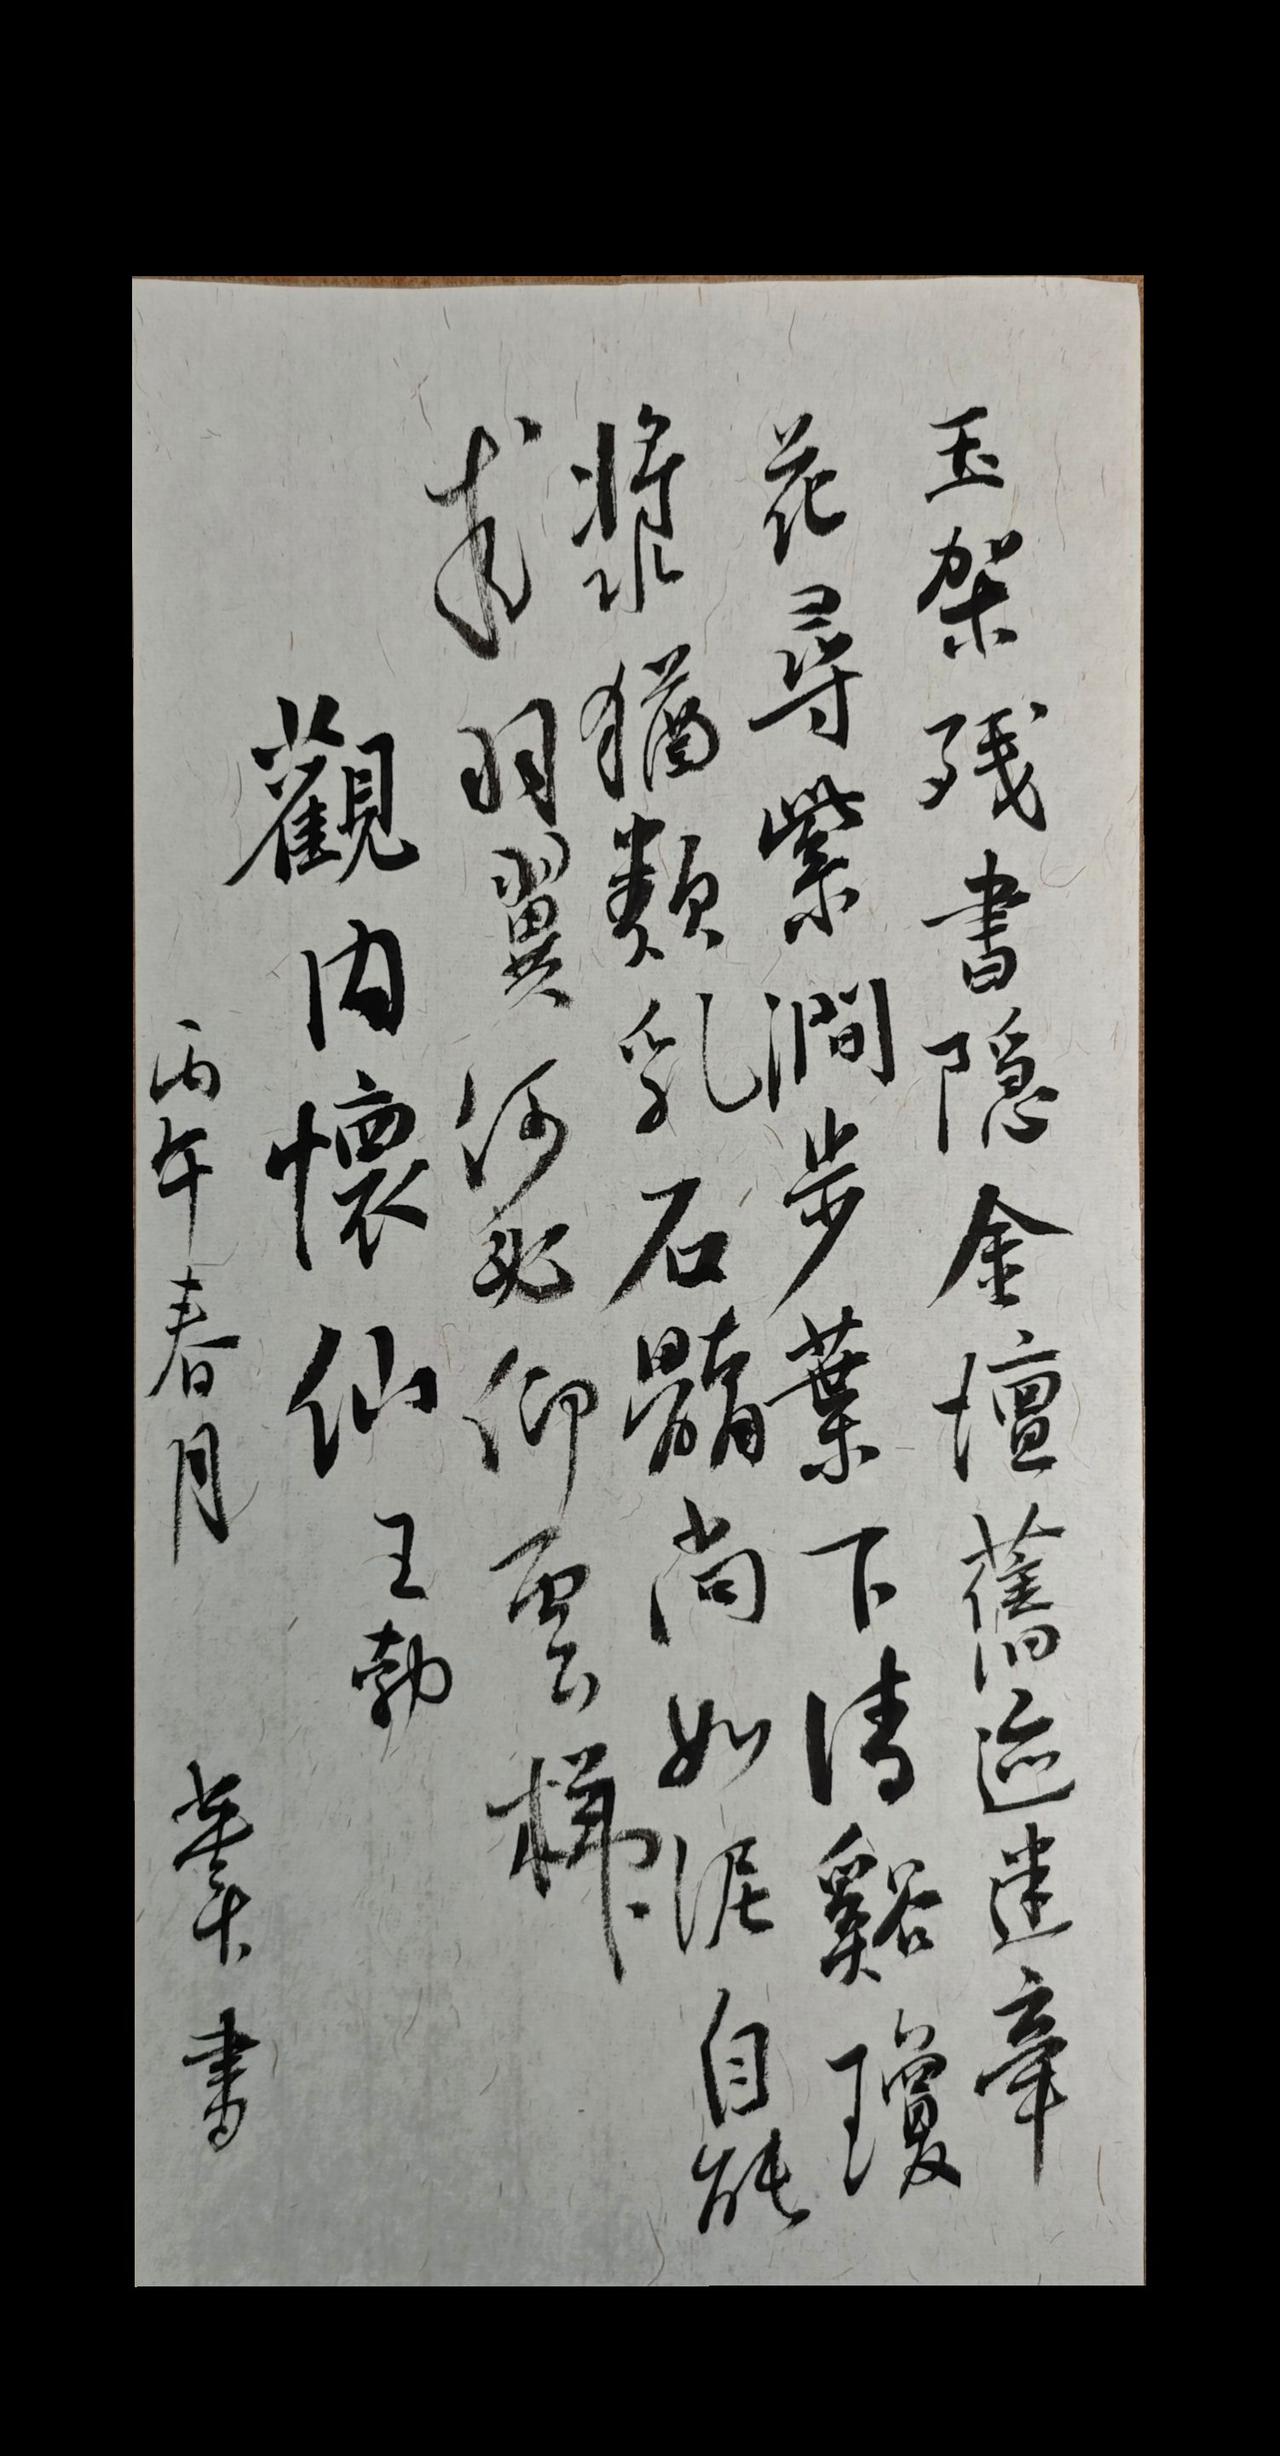 玉架残書隐金壇舊迹迷牽
花尋紫澗步葉下清谿瓊
漿猶類乳石髓尚如泥自能
成羽翼何必仰雲梯
觀内懷仙
王勃
丙午春月
書